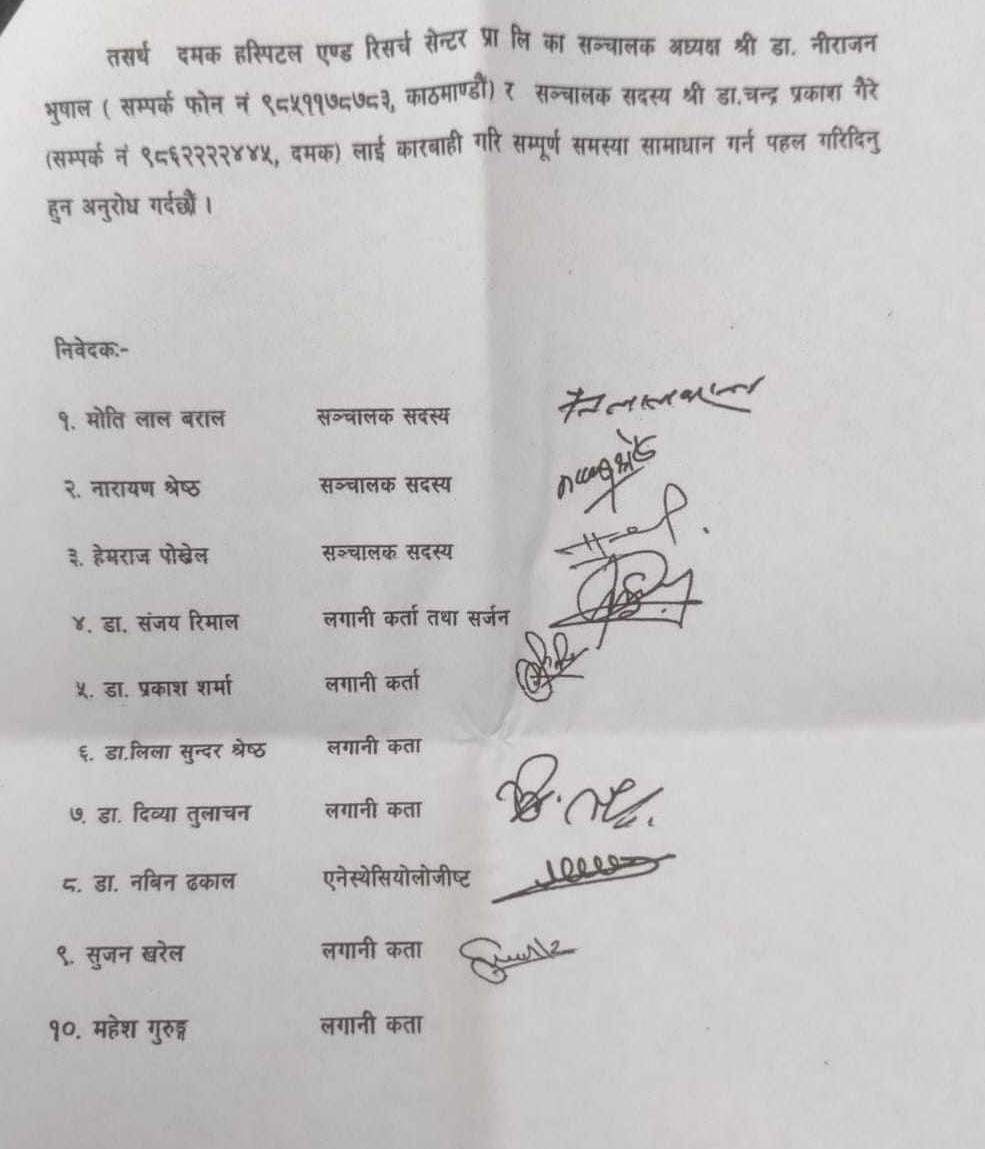 तसर्थ दमक हस्पिटल एण्ड रिसर्च सेन्टर प्रा लि का सञ्चालक अध्यक्ष श्री डा. नीराजन
भुषाल ( सम्पर्क फोन नं ९८५११७८७८३, काठमाण्डौं) र सञ्चालक सदस्य श्री डा.चन्द्र प्रकाश गैरे
(सम्पर्क नं ९८६२२२२४४५, दमक) लाई कारबाही गरि सम्पूर्ण समस्या सामाधान गर्न पहल गरिदिनु
हुन अनुरोध गर्दछौं ।
निवेदकः-
१. मोति लाल बराल सञ्चालक सदस्य
२. नारायण श्रेष्ठ सञ्चालक सदस्य
३. हेमराज पोखेल सञ्चालक सदस्य
४. डा. संजय रिमाल लगानी कर्ता तथा सर्जन
५. डा. प्रकाश शर्मा लगानी कर्ता
६. डा.लिला सुन्दर श्रेष्ठ लगानी कता
७. डा. दिव्या तुलाचन लगानी कता
८. डा. नबिन ढकाल एनेस्थेसियोलोजीष्ट
९. सुजन खरेल लगानी कता
१०. महेश गुरुङ्ग लगानी कता